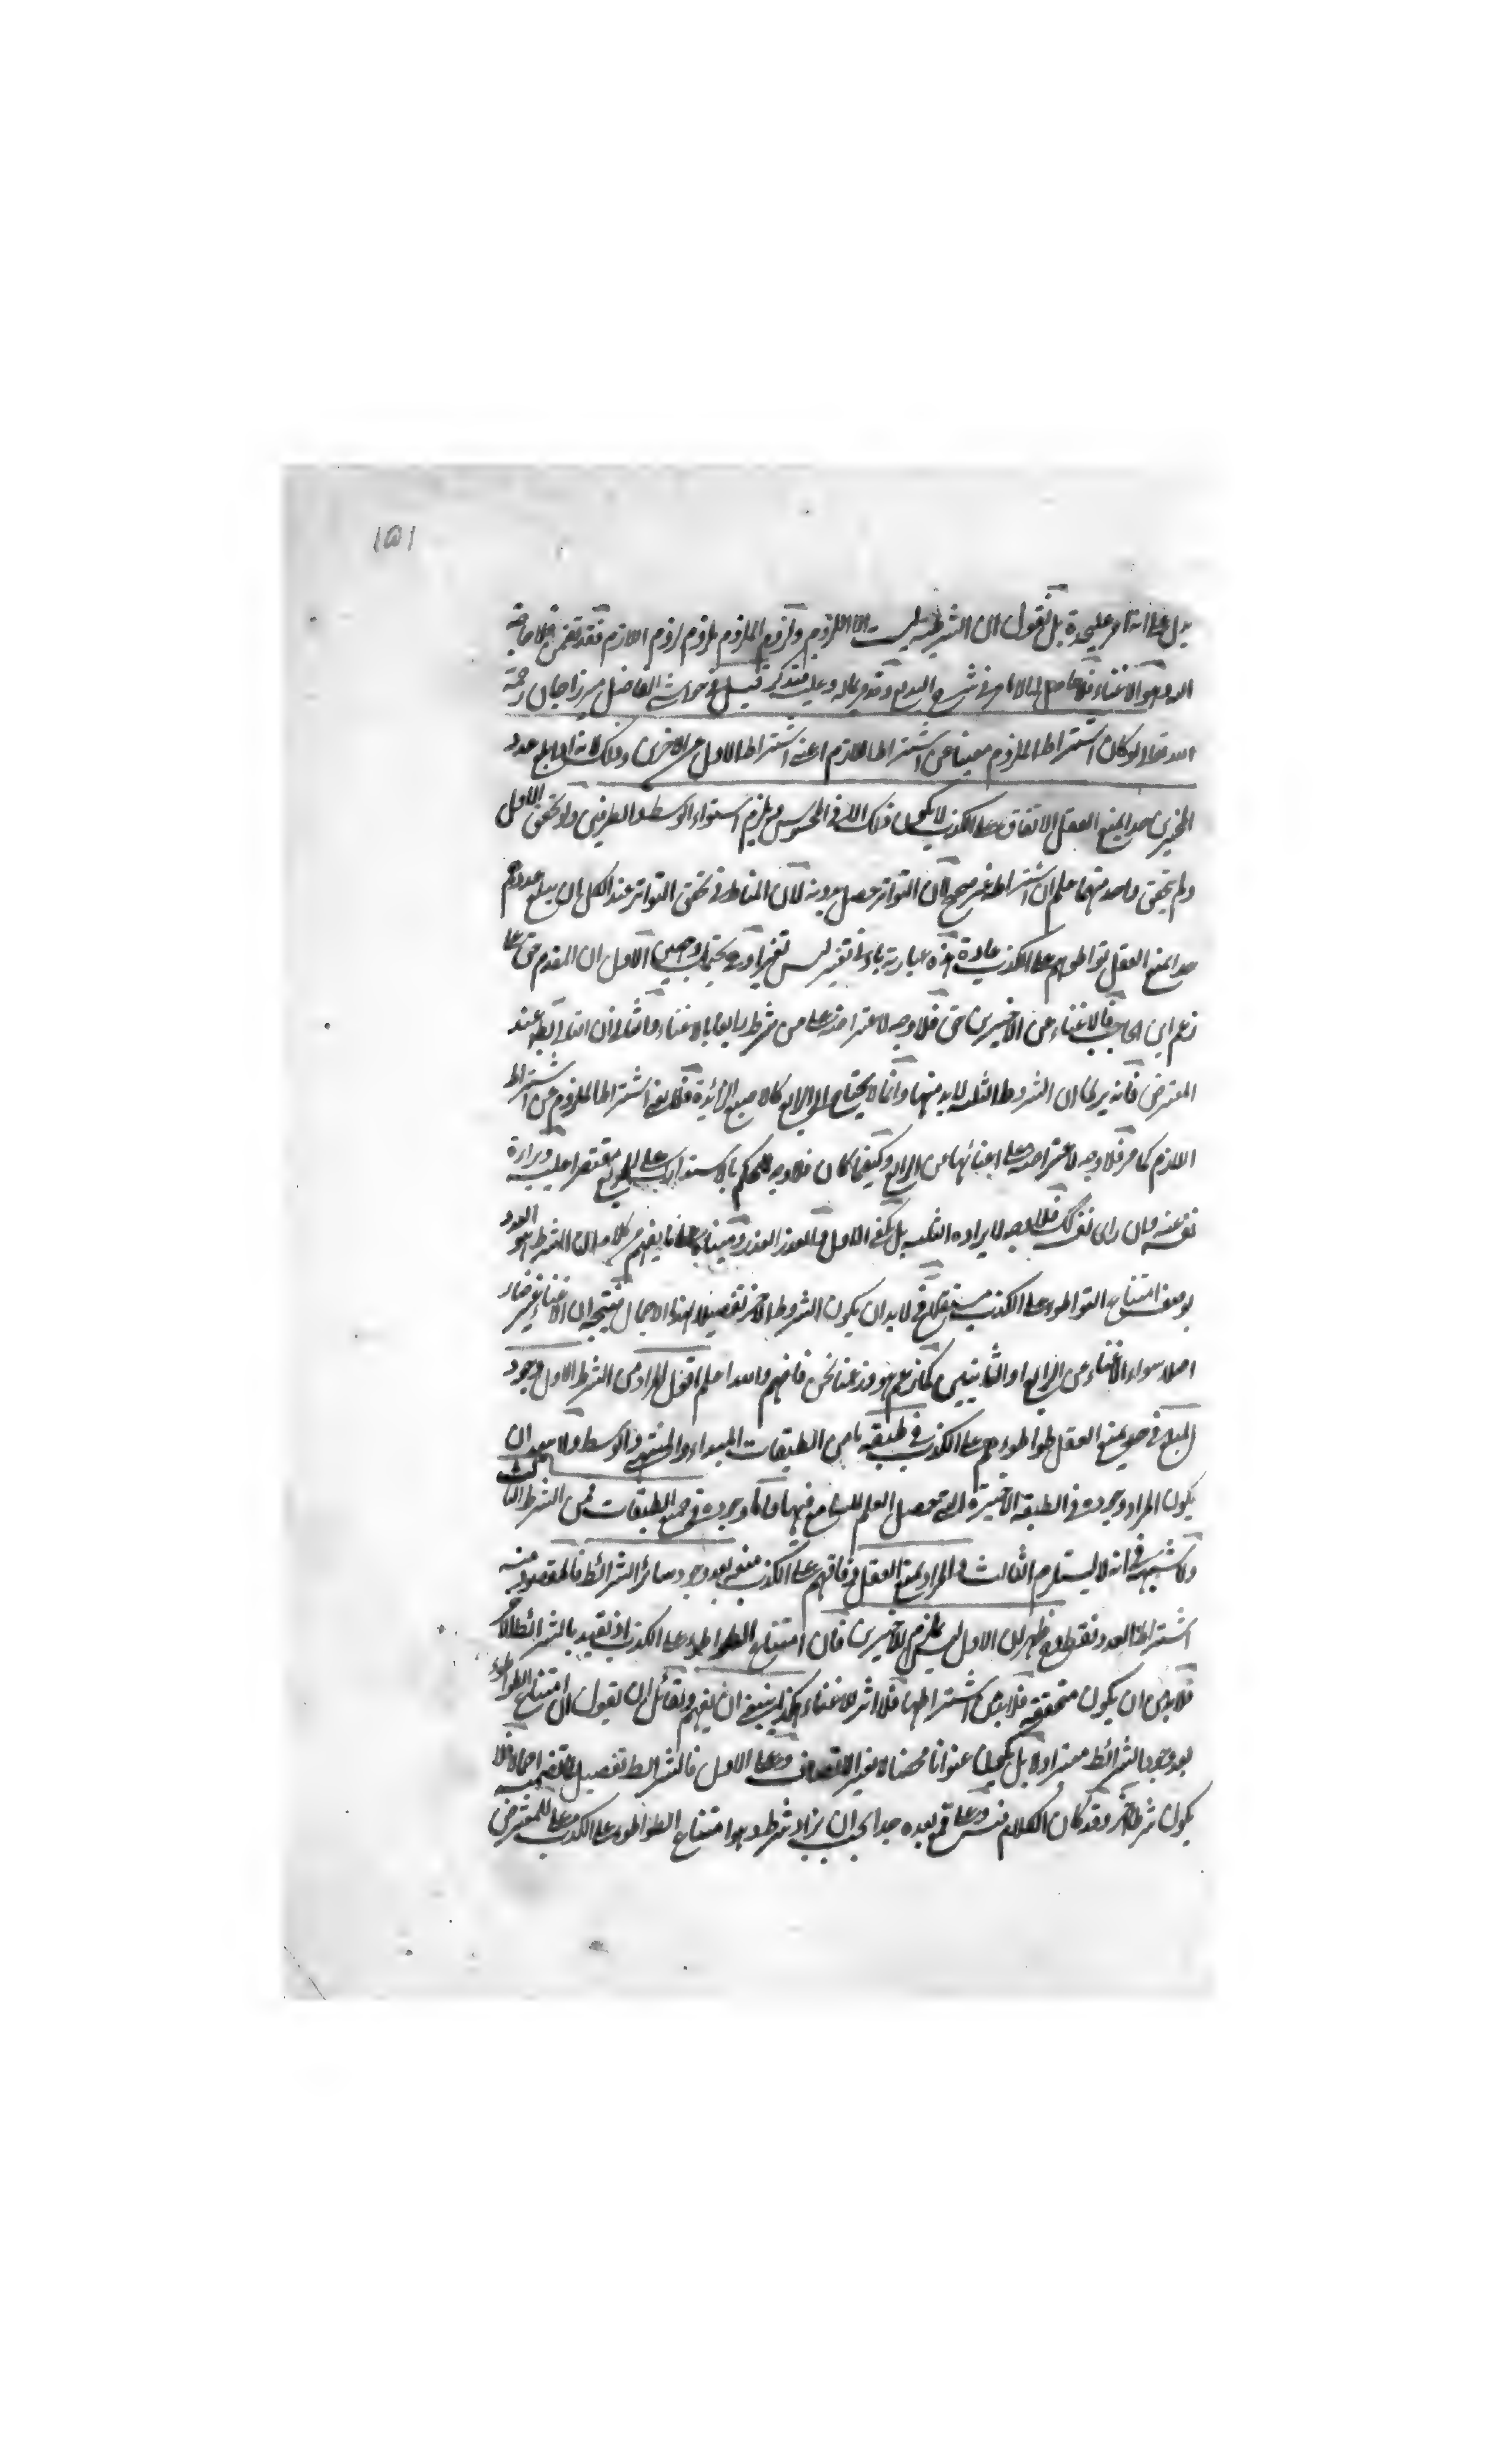 ١٥١
يدل على انه امر عليحدة بل نقول ان الشرطية ليست الا اللزوم ولزوم الملزوم ملزوم لزوم اللازم فقد تضمن فلا حاجة
وهو الاغناء فلا حاصل في شرح البديع وماله وما عليه فتذكر قيل في حواشي الفاضل ميرزا جان رحمة
الله تعالى لو كان اشتراط الملزوم مغنيا عن اشتراط اللازم اغنى اشتراط الاول عن الاخرين وذلك لانه اذا بلغ عدد
المخبرين حدا يمنع العقل الاتفاق على الكذب لا يكون ذلك الا في المحسوس ويلزم استواء الوسط والطرفين ولو تحقق الاول
ولم يتحقق واحد منهما علم ان اشتراطه غير صحيح لان التواتر حصل بدونه لان المناط في تحقق التواتر عند الكل ان يبلغ عددهم
حدا يمنع العقل تواطوهم على الكذب عادة هذه عبارته بادنى تغيير ليس تغييرا وهو يحتمل وجهين الاول ان المقدم حق على
زعم ابن الحاجب فالاغناء عن الاخيرين حق فلا وجه لاعتراضه على من شرط رابعا بالاغناء والثاني ان التالي باطل عند
المعترض فانه يرى ان الشروط الثلثة لابد منها وانما لا يحتاج الى الرابع كالاصبع الزائدة فلا يغني اشتراط الملزوم عن اشتراط
اللازم كما مر فلا وجه لاعتراضه على اغنائها عن الرابع وكيفما كان فلا وجه للحكم بالاستدراك على الرابع مقتصرا عليه
فلا وجه لايراده الثلثة بل يكفي الاول والعذر العذر ومبناه على ما يفهم من كلامه ان الشرط هو العدد
بوصف امتناع التواطوء على الكذب مستقلا فلابد ان يكون الشروط الاخر تفصيلا لهذا الاجمال فيتجه ان الاغناء غير ضار
اصلا سواء الاغناء عن الرابع او الثانيين كما زعم هو وزعمنا نحن فافهم والله اعلم اقول المراد من الشرط الاول وجود
المبلغ في حد يمنع العقل تواطوءهم على الكذب في طبقة ما من الطبقات المبدا والمنتهى والوسط ولا يبعد ان
يكون المراد وجوده في الطبقة الاخيرة التي تحصل العلم للسامع فيها واما وجوده في جميع الطبقات فمن الشرط الثالث
ولا شبهة في انه لا يستلزم الثالث والمراد بمنع العقل توافقهم على الكذب منعه بعد وجود سائر الشرائط فالمقصود منه
اشتراط العدد فقط فظهر ان الاول ليس ملزوم للاخيرين فان امتناع التواطوء على الكذب اذ تقيد بالشرائط الاخر
فلابد من ان يكون متحققة فلابد من اشتراطها فلا اثر للاغناء هكذا ينبغي ان يفهم ولقائل ان يقول ان امتناع التواطوء
بعد وجود الشرائط معتبر اولا بل يكون عنوانا محضا وعلى الاول فالشرائط تفصيل لما تضمنه اجمالا فلا
يكون شرطا اخر وقد كان الكلام فيه وعلى بعده حدا يجب ان يزاد شرط وهو امتناع التواطوء على الكذب للمعترض